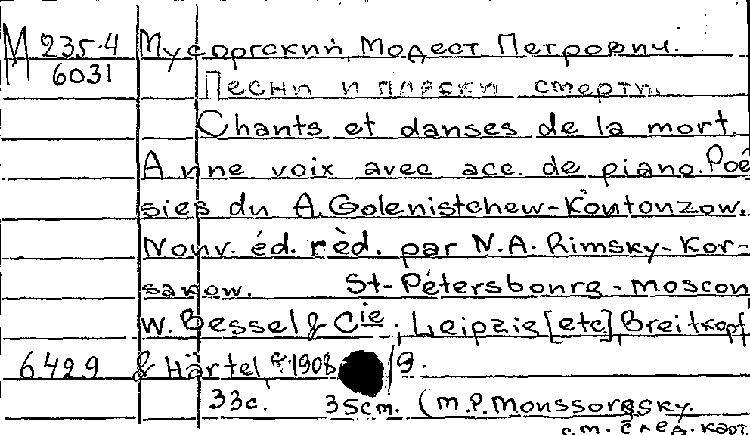 М 235-4 Мусоргский, Модест Петрович.
6031
Песни и пляски смерти.
Chants et danses de la mort.
A une voix avec acc. de piano. Poé
sies du A. Golenistchew-Koutouzow.
Nouv. éd. rèd. par N.A. Rimsky-Kor-
sakow. St-Pétersbourg - Moscou
W. Bessel & Cie; Leipzig [etc] Breitkopf
6429 & Härtel, c. 1908
33c. 35cm. (M.P. Moussorgsky.
см. след. карт.